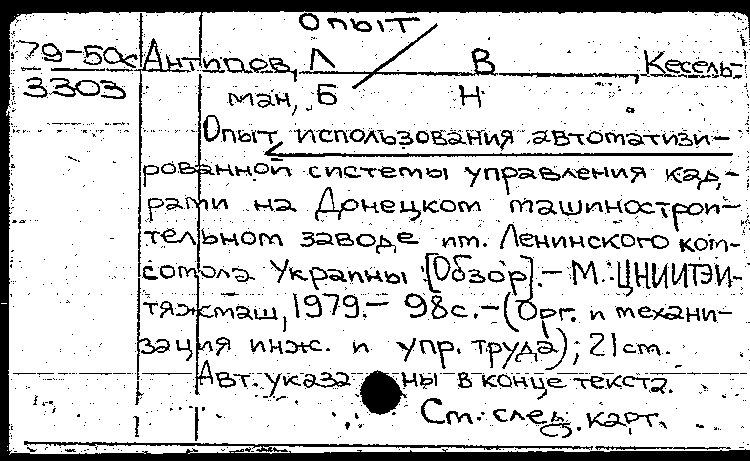 Опыт
79-50с Антипов, Л В , Кесель-
3303 ман, Б Н
Опыт использования автоматизи-
рованной системы управления кад-
рами на Донецком машинострои-
тельном заводе им. Ленинского ком-
сомола Украины [Обзор].- М.: ЦНИИТЭИ-
тяжмаш, 1979.- 98с.-(Орг. и механи-
зация инж. и упр. труда); 21см.
Авт. указа ны в конце текста.
См. след. карт.